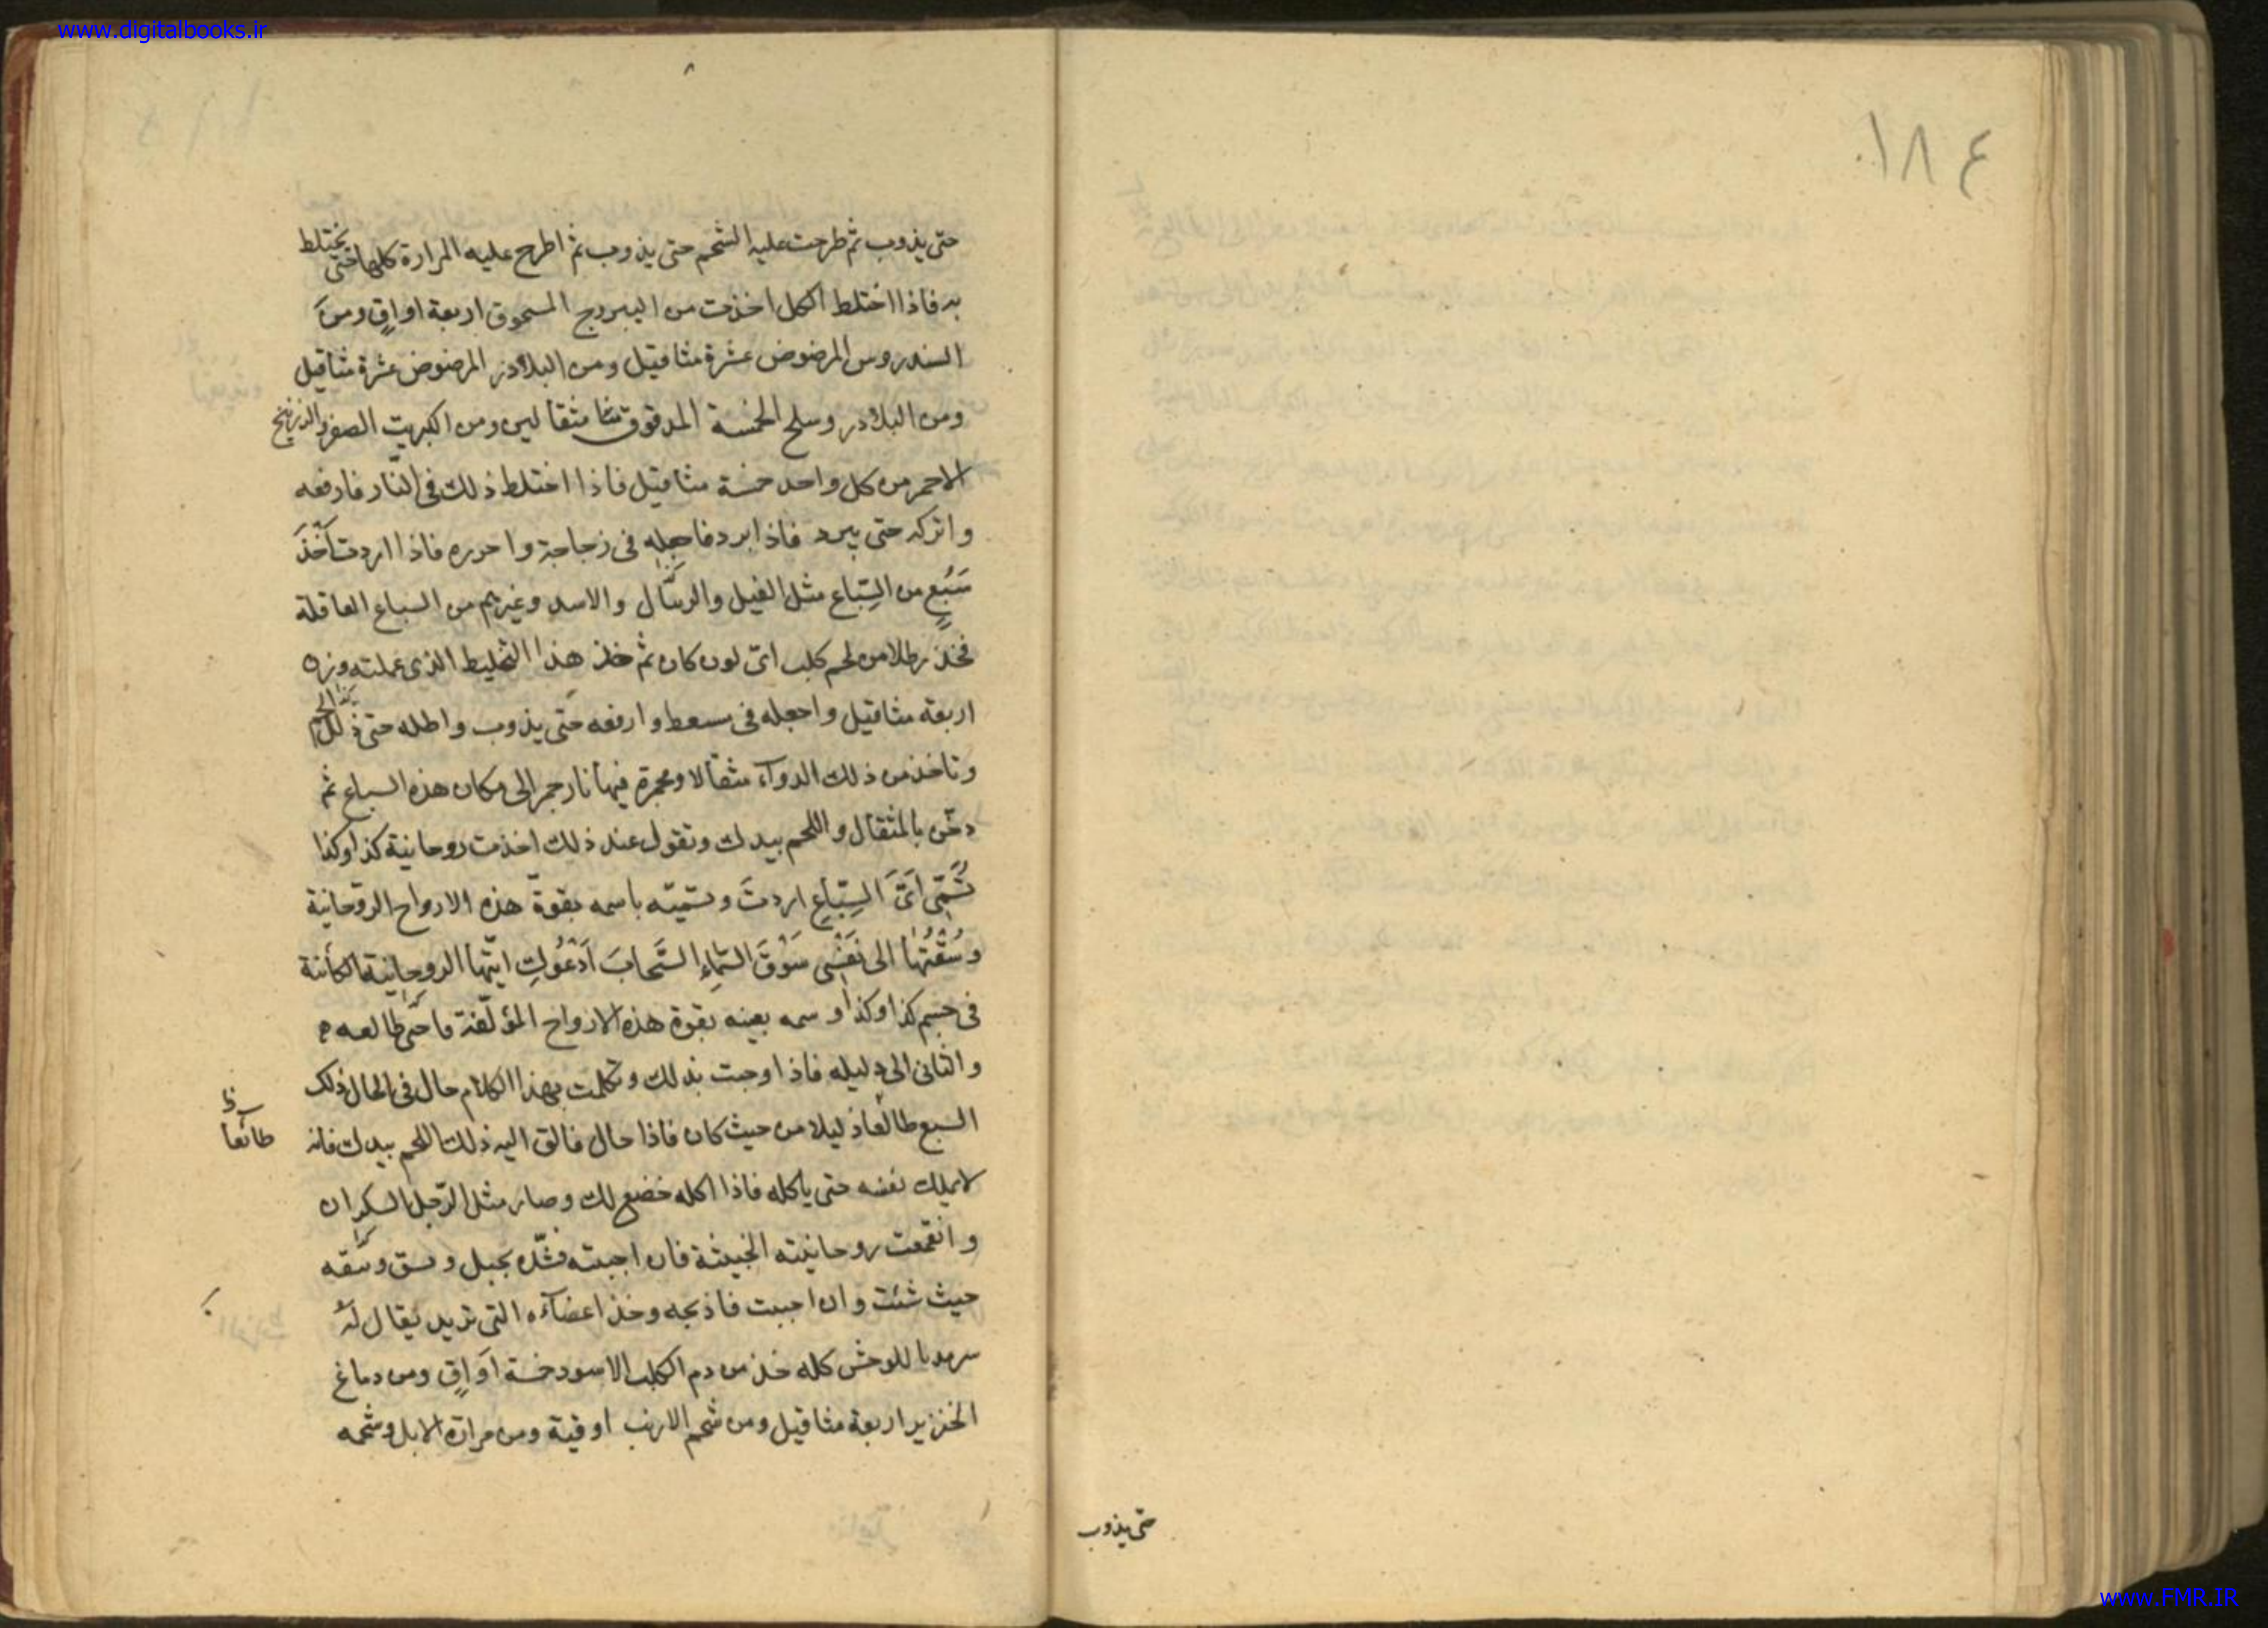 www.digitalbooks.ir
١٨٤
حتى يذوب
٨
حتى يذوب ثم طرحت عليه الشحم حتى يذوب ثم اطرح عليه المرارة كلها حتى يختلط
به فاذا اختلط الكل اخذت من اليبروج المسحوق اربعة اواقٍ ومنَ
السندروس المرضوض عشرة مثاقيل ومن البلاذر المرضوض عشرة مثاقيل
ومن البلادر وسلح الخمسة المدقوق مثقالين ومن الكبريت الصفر والزرنيخ
الاحمر من كل واحد خمسة مثاقيل فاذا اختلط ذلك فى النّار فارفعه
واتركه حتى يبرد فاذا برد فاجعله فى زجاجة واحرره فاذا اردت اخْذَ
سَبُعٍ من السِّباع مثل الفيل والرئبال والاسد وغيرهم من السباع العاقلة
فخذ رطلا من لحم كلب اىّ لون كان ثم خذ هذا التخليط الذى عملته وزن
اربعة مثاقيل واجعله فى مسعط وارفعه حتى يذوب واطله حتى ذلك اللحم
وتاخذ من ذلك الدوآء مثقالا ومجمرة فيها نار جمر الى مكان هذه السباع ثم
دخّن بالمثقال واللحم بيدك وتقول عند ذلك اخذت روحانية كذا وكذا
تُسَمّى اىَّ السِّباعِ اردتَ وتسميّه باسمه بقوة هذه الارواح الرّوحانية
وسُقْتُها الى نَفْسى سَوْقَ السَّماءِ السَّحابَ اَدْعُوكِ ايّتها الروحانية الكائنة
فى جسم كذا وكذا وسمه بعينه بقوة هذه الارواح المؤلّفة ما حتى طالعه
والثانى الى دليله فاذا وجبت بذلك وتكلمت بهذا الكلام حال فى الحال ذلك
السبع طالعًا ذليلا من حيث كان فاذا حال فالق اليه ذلك اللحم بيدك فانه
طآئعا
لا يملك نفسه حتى ياكله فاذا اكله خضع لك وصار مثل الرّجل السكران
وانقمعت روحانيته الخبيثة فان احببته فشّده بحبل وسق وسُقه
حيث شئت وان احببت فاذبحه وخذ اعضآءه التى تريد يقال لهُ
سرمدبا للوحش كله خذ من دم الكلب الاسود خمسة اَواقٍ ومن دماغ
الخنزير اربعة مثاقيل ومن شحم الارنب اوقية ومن مرارة الابل وشحمه
www.FMR.IR